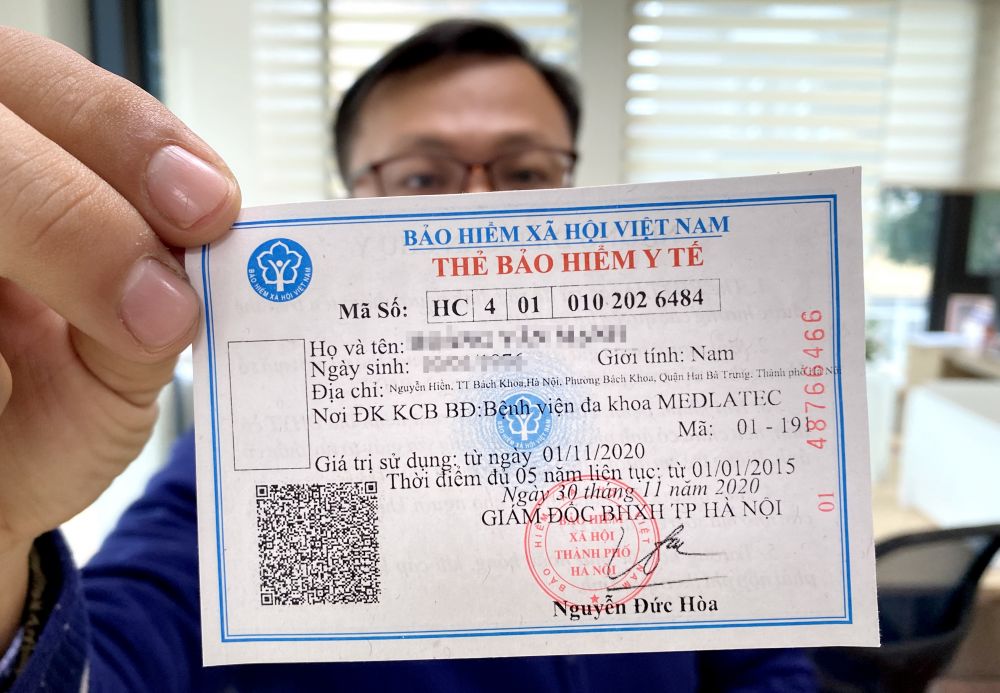 BẢO HIỂM XÃ HỘI VIỆT NAM
THẺ BẢO HIỂM Y TẾ
BẢO HIỂM XÃ HỘI VIỆT NAM
Mã Số: HC 4 01 010 202 6484
Họ và tên:
Ngày sinh: Giới tính: Nam
Địa chỉ: Nguyễn Hiền, TT Bách Khoa,Hà Nội, Phường Bách Khoa, Quận Hai Bà Trưng, Thành phố Hà Nội
Nơi ĐK KCB BĐ:Bệnh viện đa khoa MEDLATEC
Mã: 01 - 191
BẢO HIỂM XÃ HỘI VIỆT NAM
Giá trị sử dụng: từ ngày 01/11/2020
Thời điểm đủ 05 năm liên tục: từ 01/01/2015
Ngày 30 tháng 11 năm 2020
GIÁM ĐỐC BHXH TP HÀ NỘI
BẢO HIỂM XÃ HỘI VIỆT NAM
BẢO HIỂM
XÃ HỘI
THÀNH PHỐ
HÀ NỘI
Nguyễn Đức Hòa
01 48766466